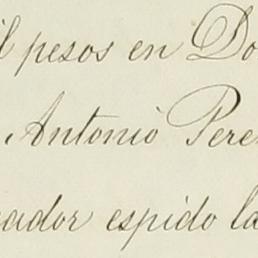 il pesos en Do
Antonio Pere
ador espido la